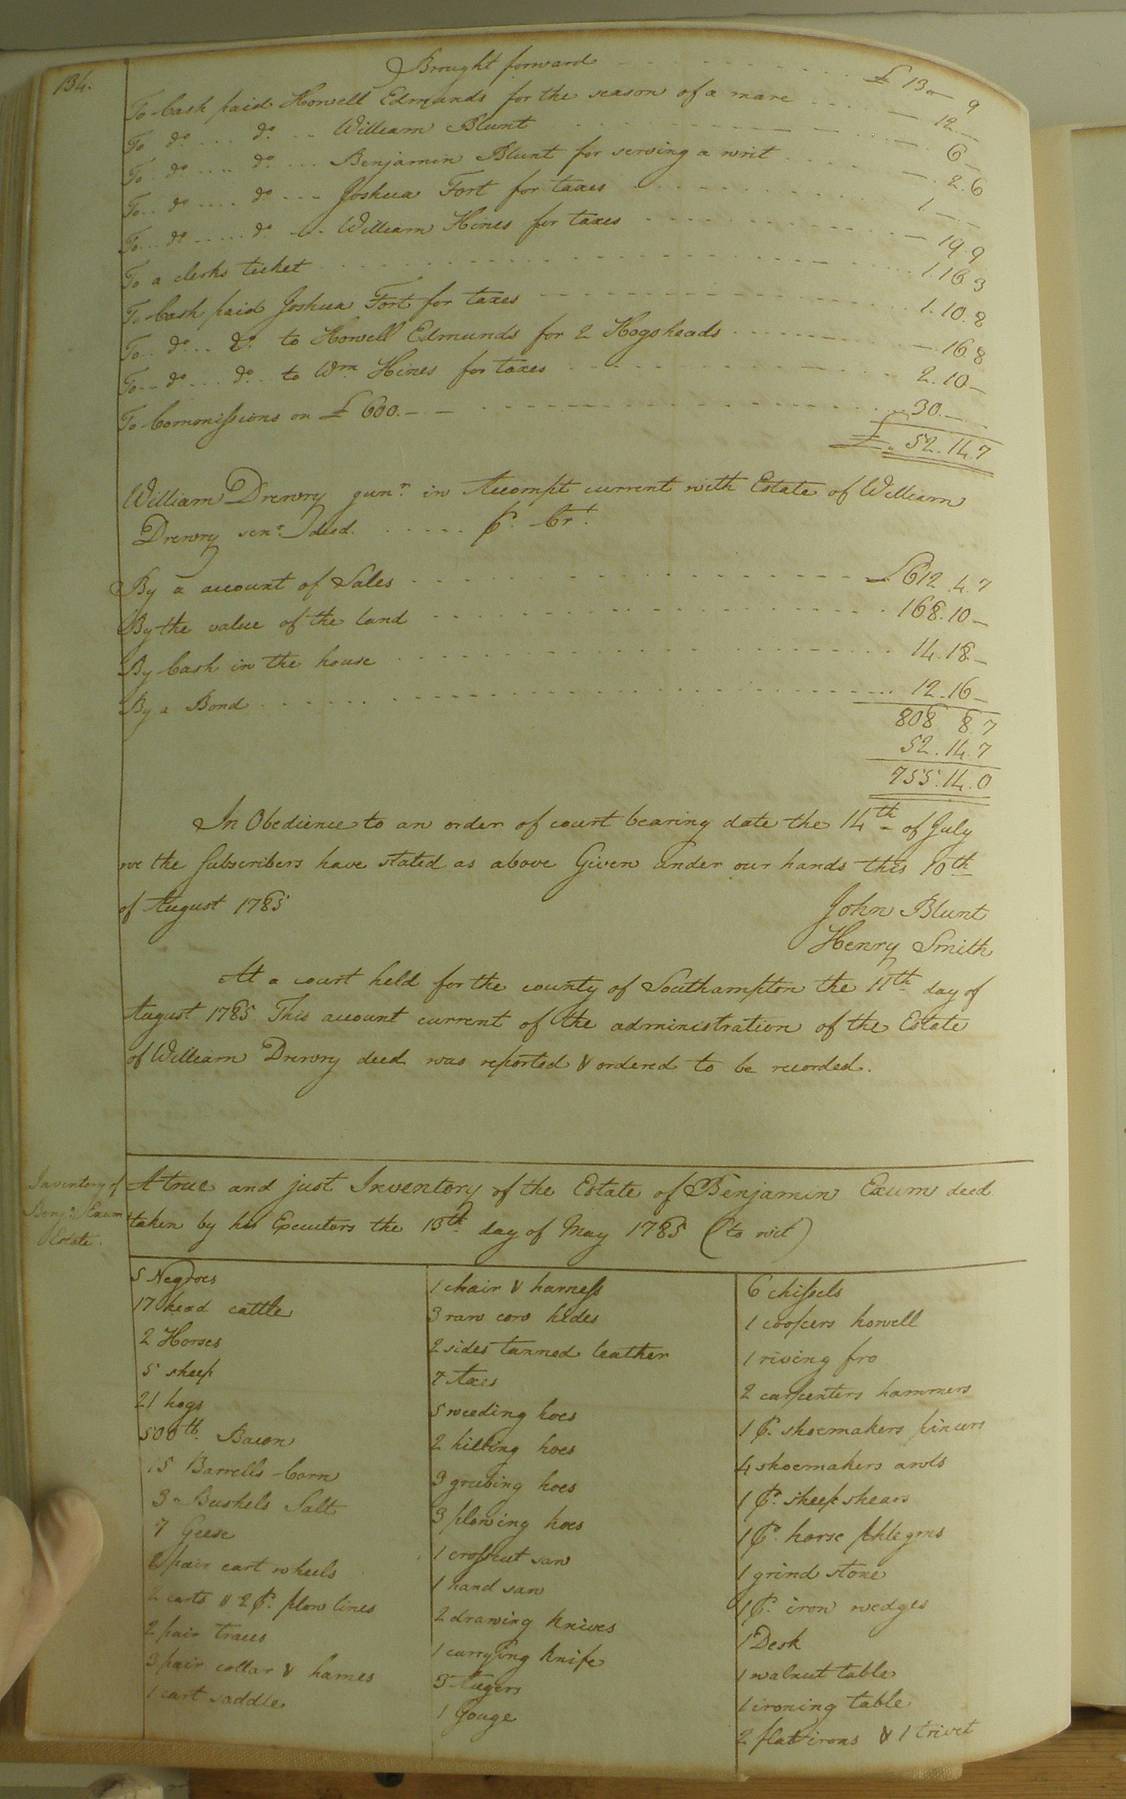 134.
Brought forward £ 13 — 9
To Cash paid Howell Edmunds for the season of a mare — 12 —
To do do William Blunt — 6 —
To do do Benjamin Blunt for serving a writ — 2.6
To do do Joshua Fort for taxes 1 — —
To do do William Hines for taxes — 19.9
To a clerks ticket 1.16 3
To Cash paid Joshua Fort for taxes 1.10.8
To do do to Howell Edmunds for 2 Hogsheads — 16 8
To do do to Wm Hines for taxes 2.10 —
To Commissions on £ 600. — 30. —
£ 52.14.7
William Drewry junr in Accompt current with Estate of William
Drewry senr decd. Cr.
By a account of Sales £612.4.7
By the value of the land 168.10 —
By Cash in the house 14.18 —
By a Bond 12.16 —
808 8.7
52.14.7
755.14.0
In Obedience to an order of court bearing date the 14th of July
we the Subscribers have stated as above Given under our hands this 10th
of August 1785
John Blunt
Henry Smith
At a court held for the county of Southampton the 11th day of
August 1785 This account current of the administration of the Estate
of William Drewry decd was reported & ordered to be recorded.
Inventory of
Benj. Exum
Estate.
A true and just Inventory of the Estate of Benjamin Exum decd
taken by his Executors the 15th day of May 1785 (to wit)
5 Negroes
17 head cattle
2 Horses
5 sheep
21 hogs
500 lb. Bacon
15 Barrells Corn
3 Bushels Salt
7 Geese
pair cart wheels
2 carts & 2 pr. plow lines
2 pair traces
3 pair collar & hames
1 cart saddle
1 chair & harness
3 raw cow hides
2 sides tanned leather
7 Axes
5 weeding hoes
2 hilling hoes
3 grubing hoes
3 plowing hoes
1 crosscut saw
1 hand saw
2 drawing knives
1 currying knife
3 Augers
1 Gouge
6 chissels
1 coopers howell
1 riving fro
2 carpenters hammers
1 pr. shoemakers pincers
4 shoemakers awls
1 pr. sheep shears
1 pr. horse phlegms
1 grind stone
1 pr. iron wedges
1 Desk
1 walnut table
1 ironing table
2 flat irons & 1 trivet